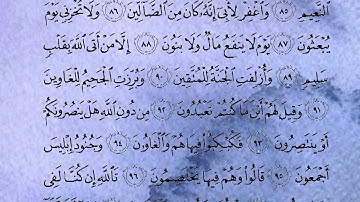 ٱلنَّعِيمِ ٨٥ وَٱغْفِرْ لِأَبِىٓ إِنَّهُۥ كَانَ مِنَ ٱلضَّآلِّينَ ٨٦ وَلَا تُخْزِنِى يَوْمَ
يُبْعَثُونَ ٨٧ يَوْمَ لَا يَنفَعُ مَالٌ وَلَا بَنُونَ ٨٨ إِلَّا مَنْ أَتَى ٱللَّهَ بِقَلْبٍ
سَلِيمٍ ٨٩ وَأُزْلِفَتِ ٱلْجَنَّةُ لِلْمُتَّقِينَ ٩٠ وَبُرِّزَتِ ٱلْجَحِيمُ لِلْغَاوِينَ
٩١ وَقِيلَ لَهُمْ أَيْنَ مَا كُنتُمْ تَعْبُدُونَ ٩٢ مِن دُونِ ٱللَّهِ هَلْ يَنصُرُونَكُمْ
أَوْ يَنتَصِرُونَ ٩٣ فَكُبْكِبُوا۟ فِيهَا هُمْ وَٱلْغَاوُۥنَ ٩٤ وَجُنُودُ إِبْلِيسَ
أَجْمَعُونَ ٩٥ قَالُوا۟ وَهُمْ فِيهَا يَخْتَصِمُونَ ٩٦ تَٱللَّهِ إِن كُنَّا لَفِى